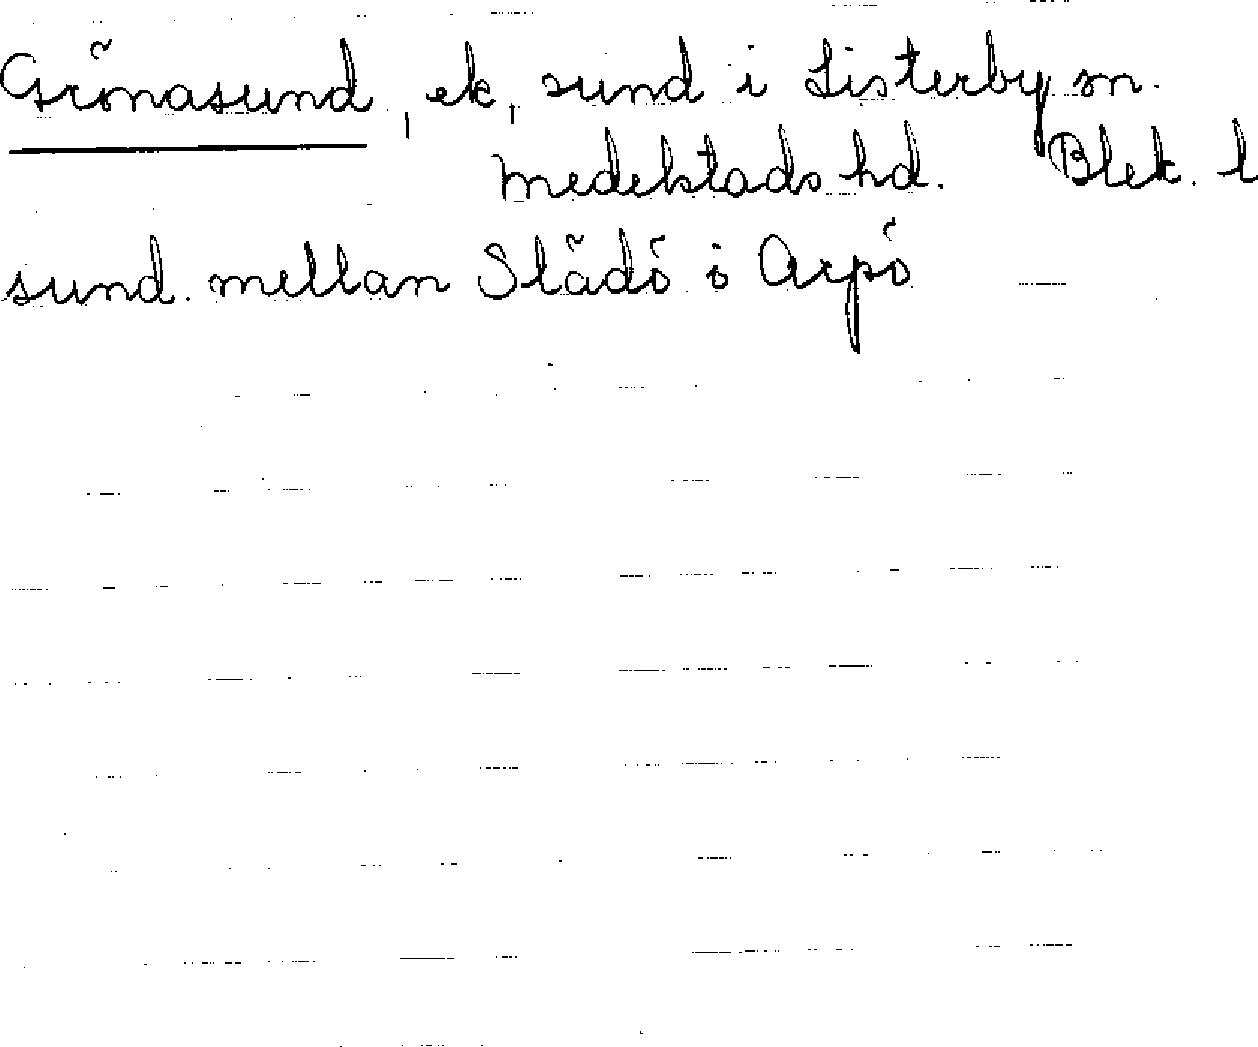 Grönasund, ek, sund i Listerby sn.
Medelstads hd. Blek. l
sund. mellan Slädö o Arpö